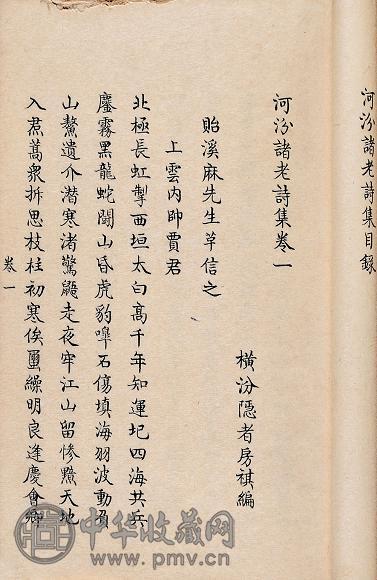 河汾諸老詩集目録
河汾諸老詩集卷一
橫汾隱者房祺編
貽溪麻先生革信之
上雲内帥賈君
北極長虹掣西垣太白高千年知運圮四海共兵
鏖霧黑龍蛇鬪山昏虎豹嘷石傷填海羽波動負
山鰲遺介潜寒渚驚鼯走夜牢江山留慘黷天地
入焄蒿衆拆思枝柱初寒俟璽繰明良逢慶會卿
卷一
中华收藏网
www.pmv.cn